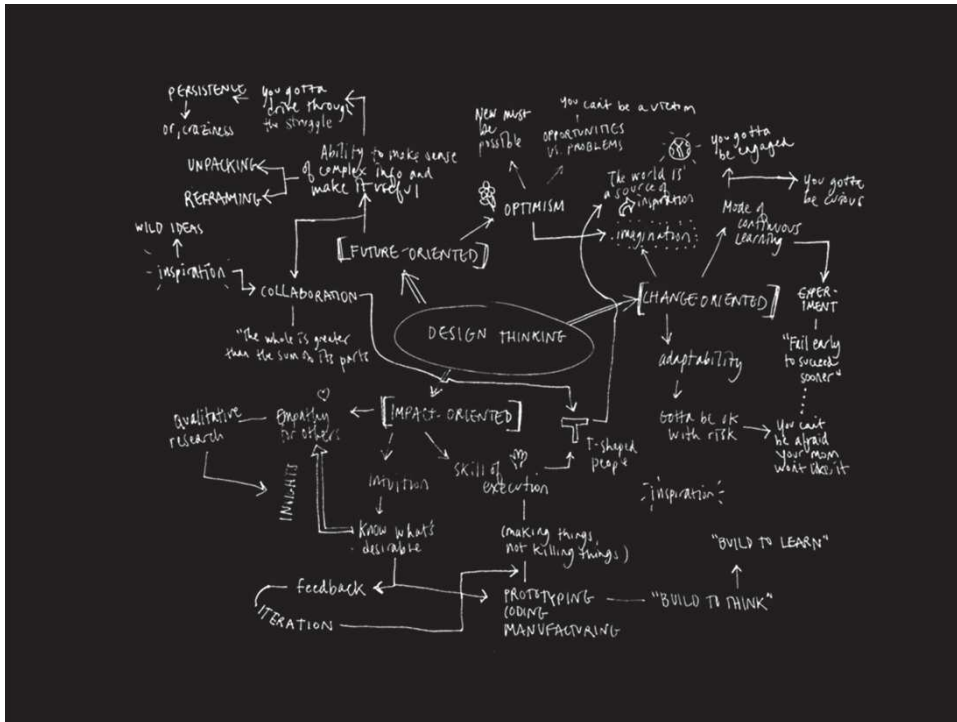 PERSISTENCE
or, craziness
you gotta
drive through
the struggle
UNPACKING
REFRAMING
Ability to make sense
of complex info and
make it useful
WILD IDEAS
inspiration
COLLABORATION
"The whole is greater
than the sum of its parts
[FUTURE-ORIENTED]
New must
be
possible
you can't be a victim
OPPORTUNITIES
VS. PROBLEMS
OPTIMISM
The world is
a source of
inspiration
imagination
you gotta
be engaged
you gotta
be curious
Mode of
continuous
learning
[CHANGE-ORIENTED]
EXPER-
IMENT
"Fail early
to succeed
sooner"
adaptability
Gotta be ok
with risk
you can't
be afraid
your mom
won't like it
DESIGN THINKING
[IMPACT-ORIENTED]
Empathy
for others
Qualitative
research
INSIGHTS
INTUITION
Know what's
desirable
Skill of
execution
T-shaped
people
inspiration
(making things,
not killing things)
feedback
ITERATION
PROTOTYPING
CODING
MANUFACTURING
"BUILD TO THINK"
"BUILD TO LEARN"